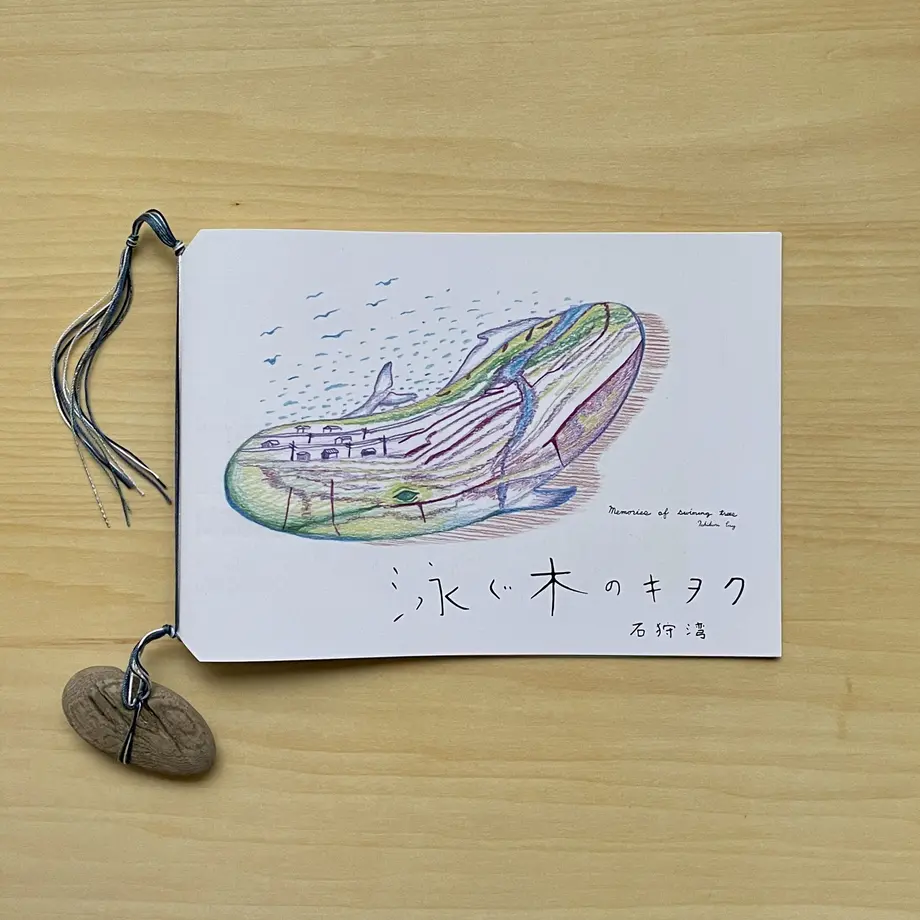 Memories of swiming trees
Ishikari Bay
泳ぐ木のキヲク
石狩湾